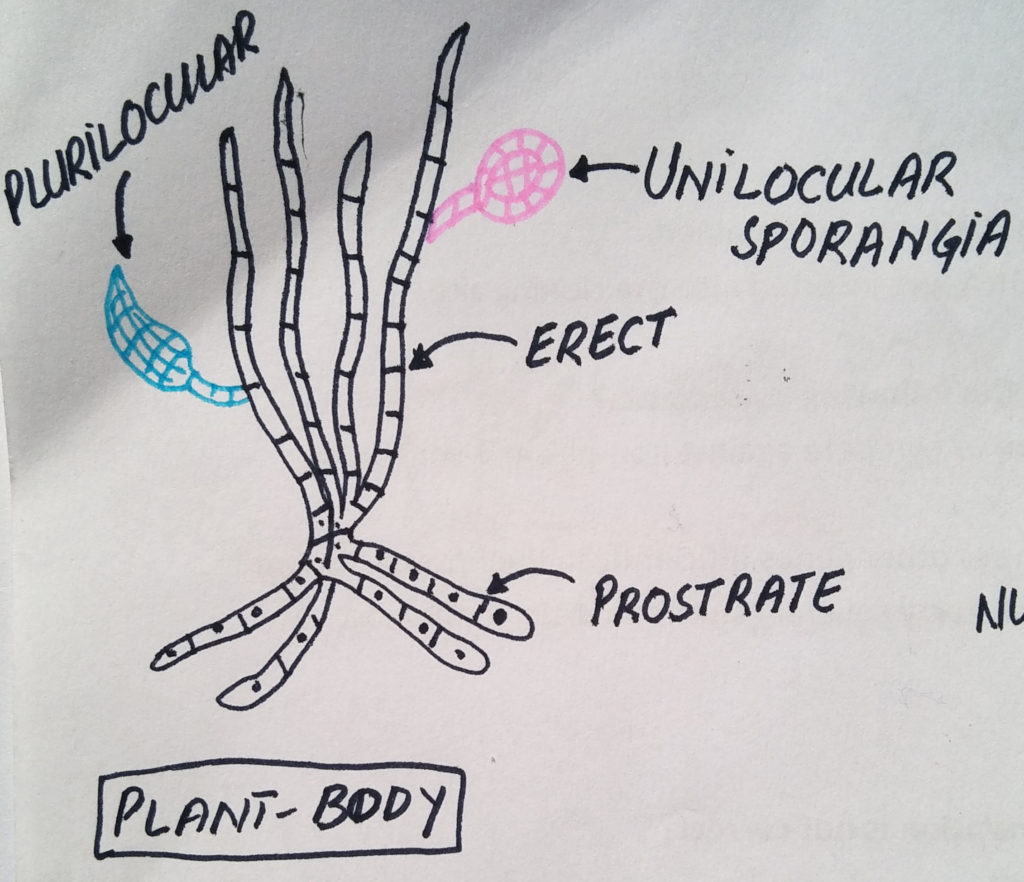 PLURILOCULAR
UNILOCULAR
SPORANGIA
ERECT
PROSTRATE
NU
PLANT-BODY